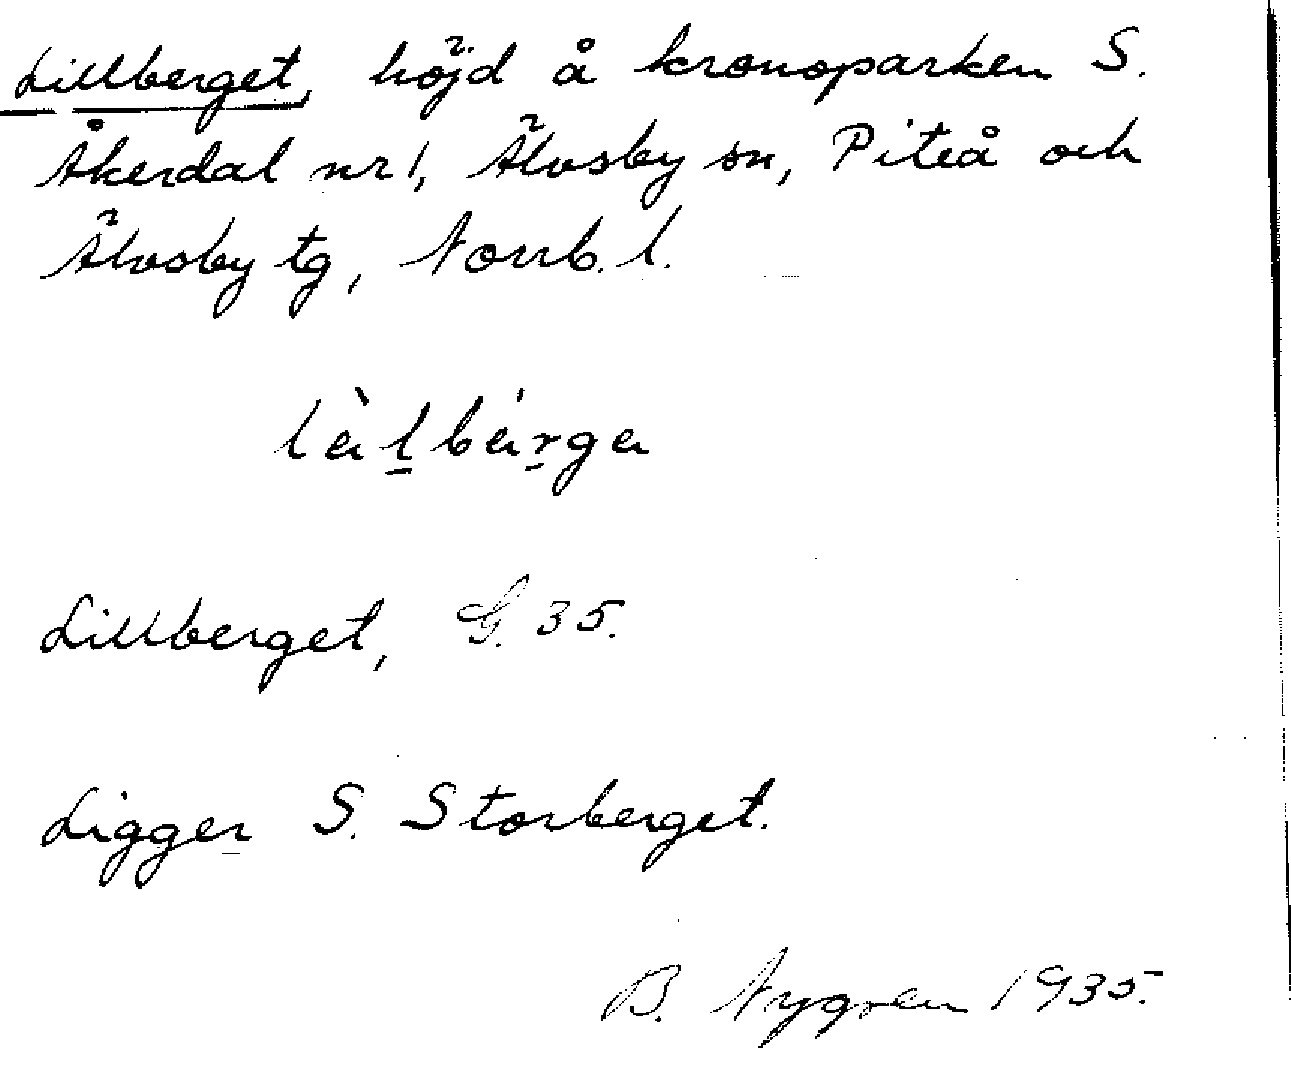 Lillberget, höjd å kronoparken S.
Åkerdal nr 1, Älvsby sn, Piteå och
Älvsby tg, Norrb. l.
Lillberget, G. 35.
Ligger S. Storberget.
B. Nygren 1935.